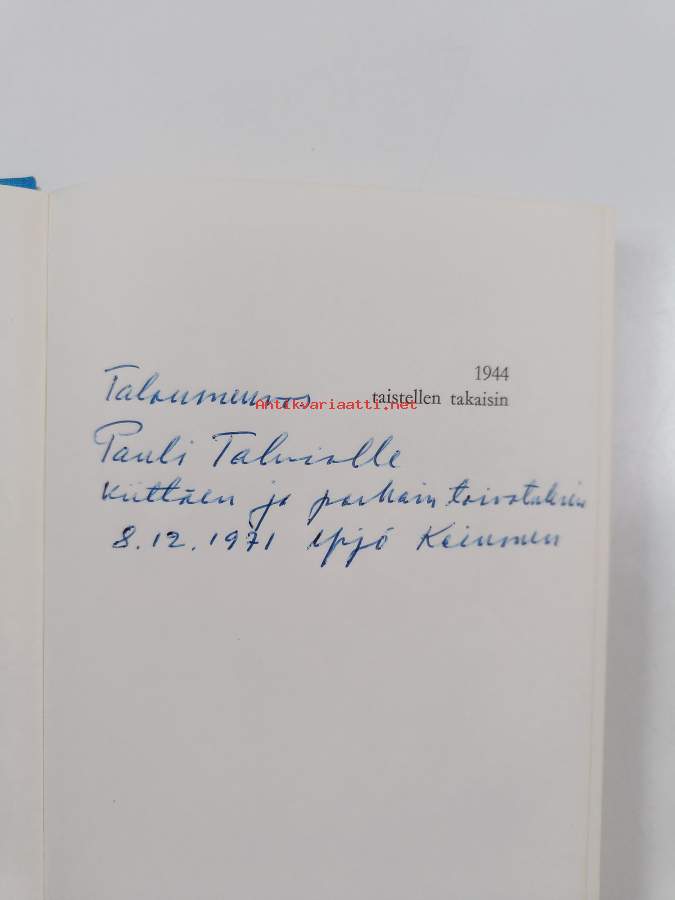 1944
taistellen takaisin
Talousneuvos
Antikvariaatti.net
Pauli Talvialle
kiittäen ja parhain toivotuksin
8.12.1971 Yrjö Keinonen